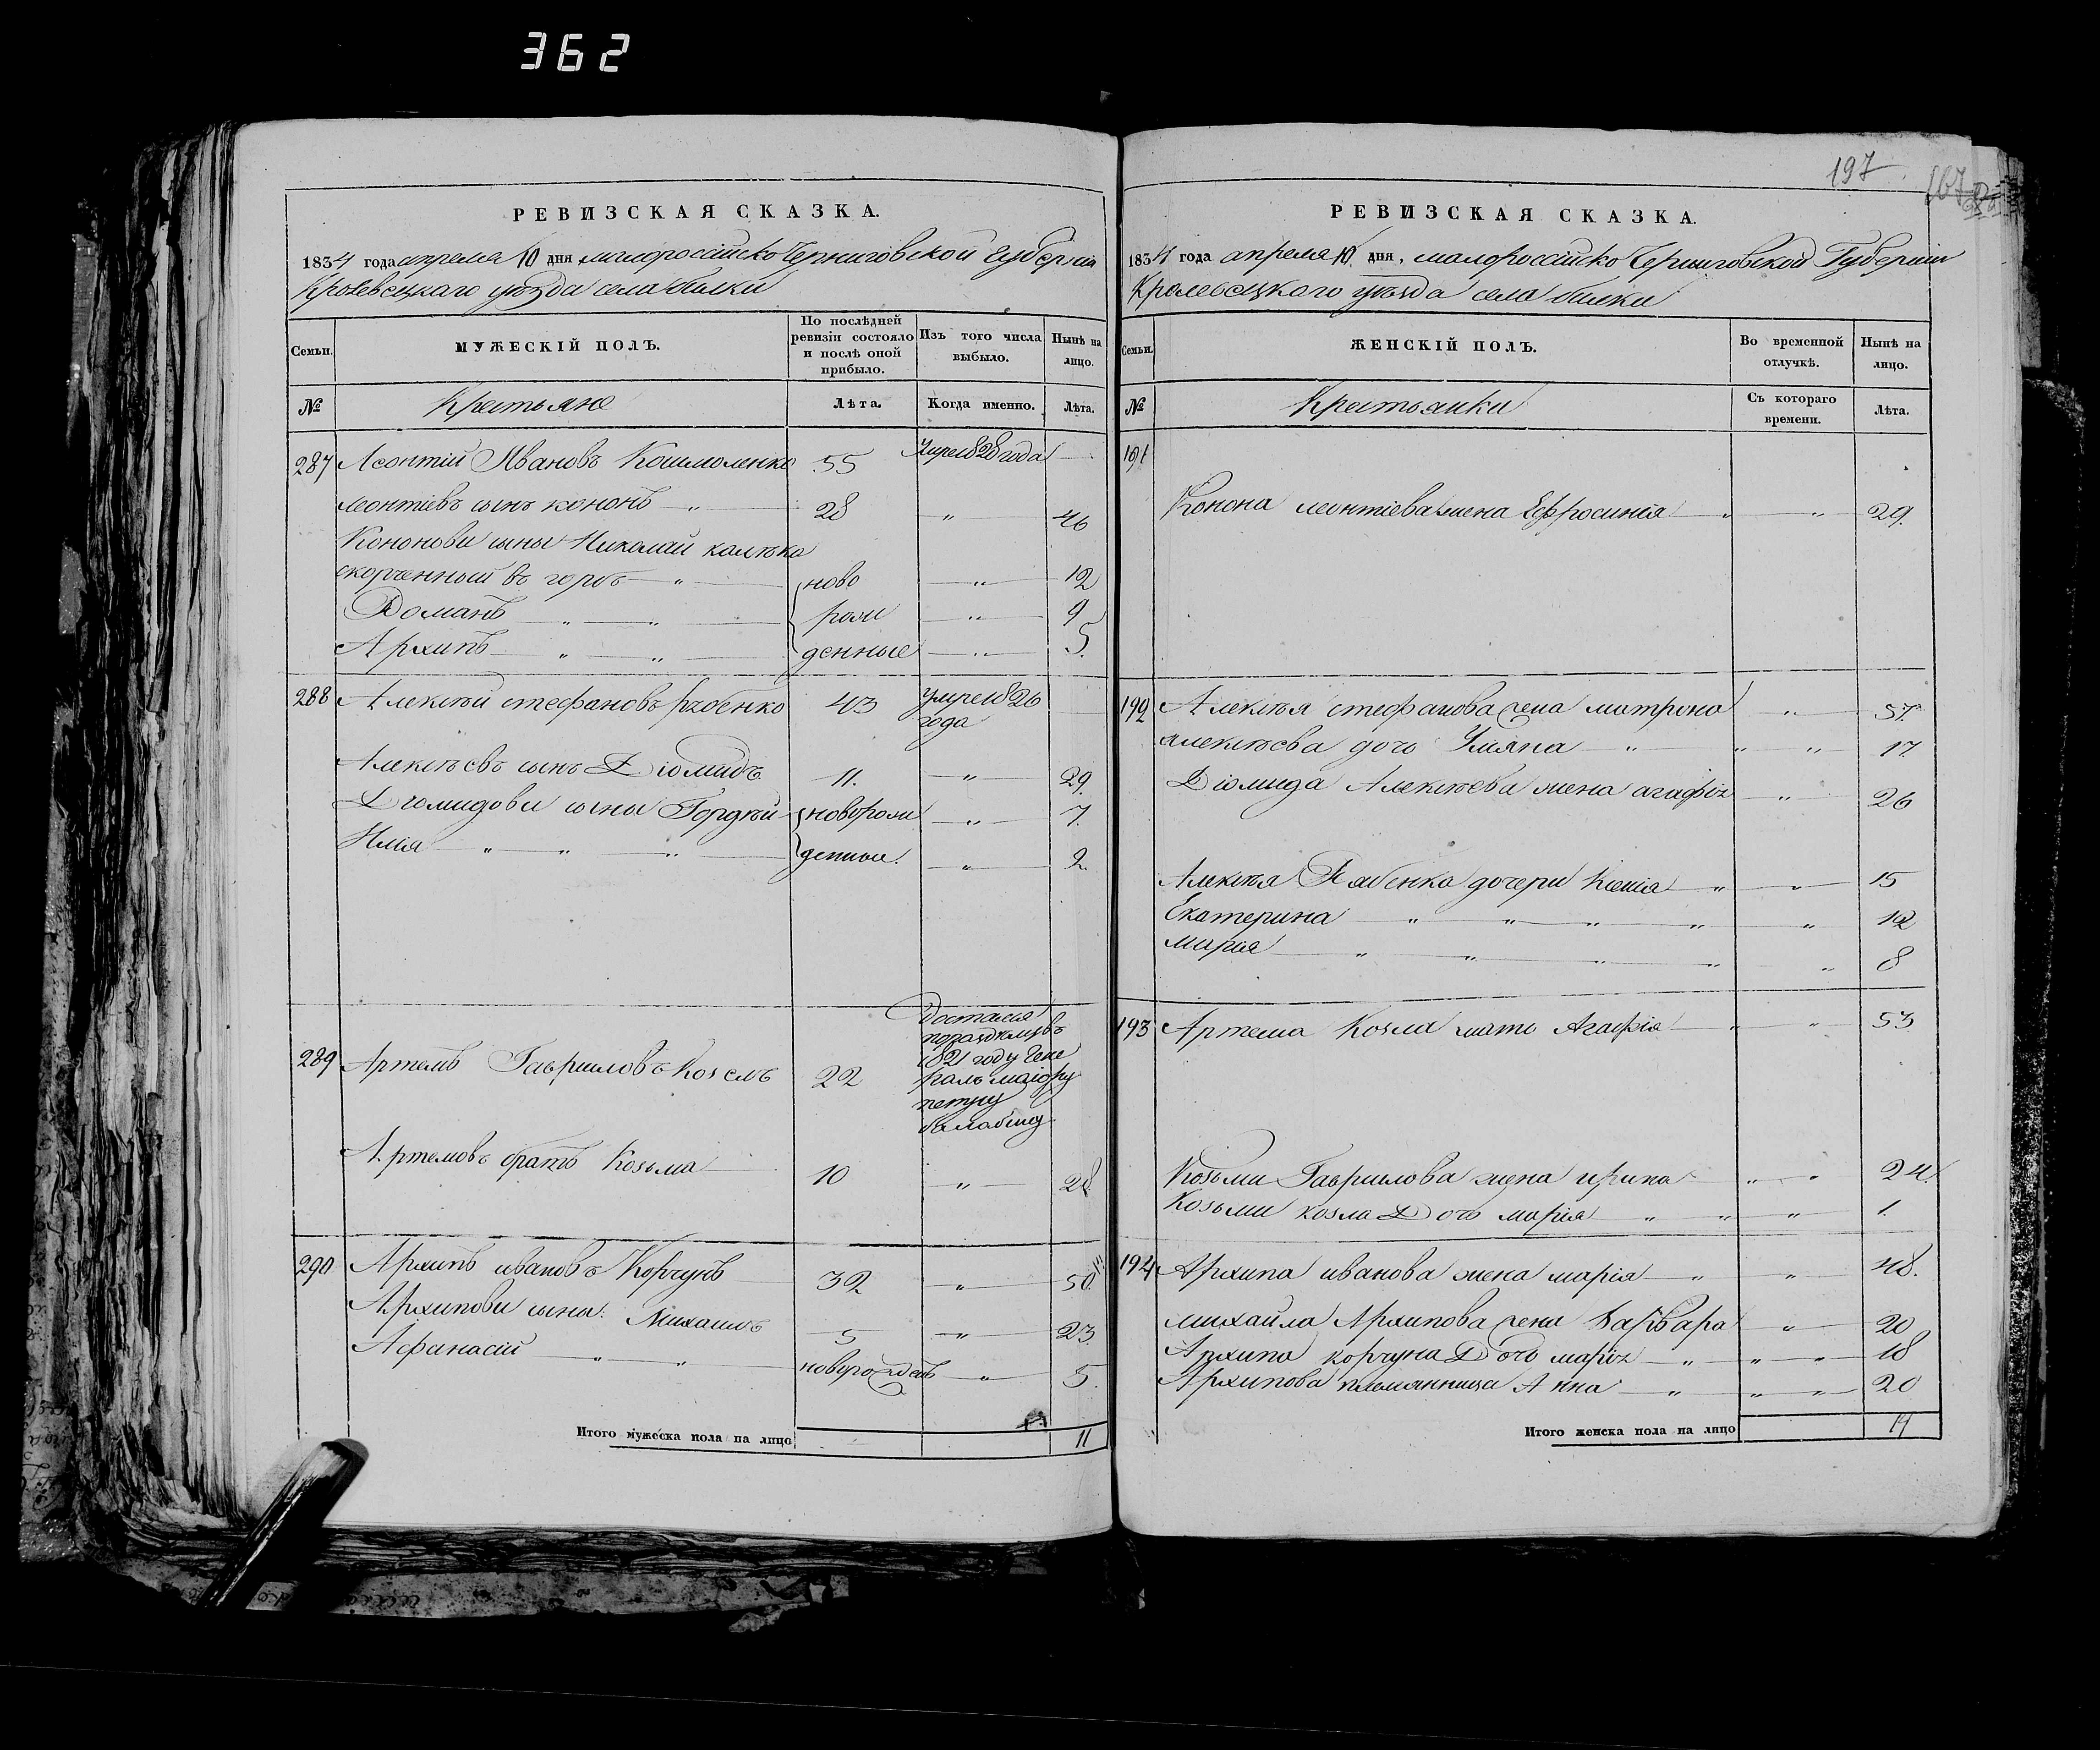 362
РЕВИЗСКАЯ СКАЗКА.
1834 года апреля 10 дня малороссійско Черниговской Губерніи
Кролевецкаго уѣзда села билки
Семьи.
МУЖЕСКІЙ ПОЛЪ.
По послѣдней ревизіи состояло и послѣ оной прибыло.
Изъ того числа выбыло.
Нынѣ на лицо.
№
Крестьяне
Лѣта.
Когда именно.
Лѣта.
287 Леонтій Ивановъ Кошмоленко 55 Умре 1828 года
леонтіевъ сынъ кононъ 28 " 46
Кононови сыны Николай калѣка
скорченный въ горбъ " ново " 12
Романъ " " рож " 9
Архипъ " " денные " 5.
288 Алексѣй стефановъ рябенко 43 умре 1826
года
Алексѣевъ сынъ Діомидъ 11. " 29.
Діомидови сыны Гордѣй новорож " 7.
Илія " " " денные. " 2.
289 Артемъ Гавриловъ Козелъ 22
Достался
по раздѣлу въ
1821 году Гене
ралъ маіору
петру
балабину
Артемовъ братъ Козьма 10 " 28.
290 Архипъ ивановъ Корчунъ 32 " 50.
Архипови сыны: Михаилъ 5 " 23
Афанасій " " новорожденъ " 5.
Итого мужеска пола на лицо 11
197
РЕВИЗСКАЯ СКАЗКА.
1834 года апреля 10 дня, малороссійско Черниговской Губерніи
Кролевецкаго уѣзда села билки
Семьи.
ЖЕНСКІЙ ПОЛЪ.
Во временной отлучкѣ.
Нынѣ на лицо.
№
Крестьянки
Съ котораго времени.
Лѣта.
191
Конона леонтіева жена Ефросинія " " 29.
192 Алексѣя стефанова жена матрона " 57.
алексѣева дочь Уліяна " " " 17.
Діомида Алексѣева жена агафія " 26
Алексѣя Рябенка дочери Ксенія " " 15
Екатерина " " " " " 12
марія " " " " " 8
193 Артема Козла мать Агафія " " 53
Козьми Гаврилова жена ирина " " 24.
Козьми козла Дочь марія " " " 1.
194 Архипа иванова жена марія " " 48.
михайла Архипова жена Варвара " 20
Архипа корчуна Дочь марія " " " 18
Архипова племянница Анна " " " 20
Итого женска пола на лицо 14